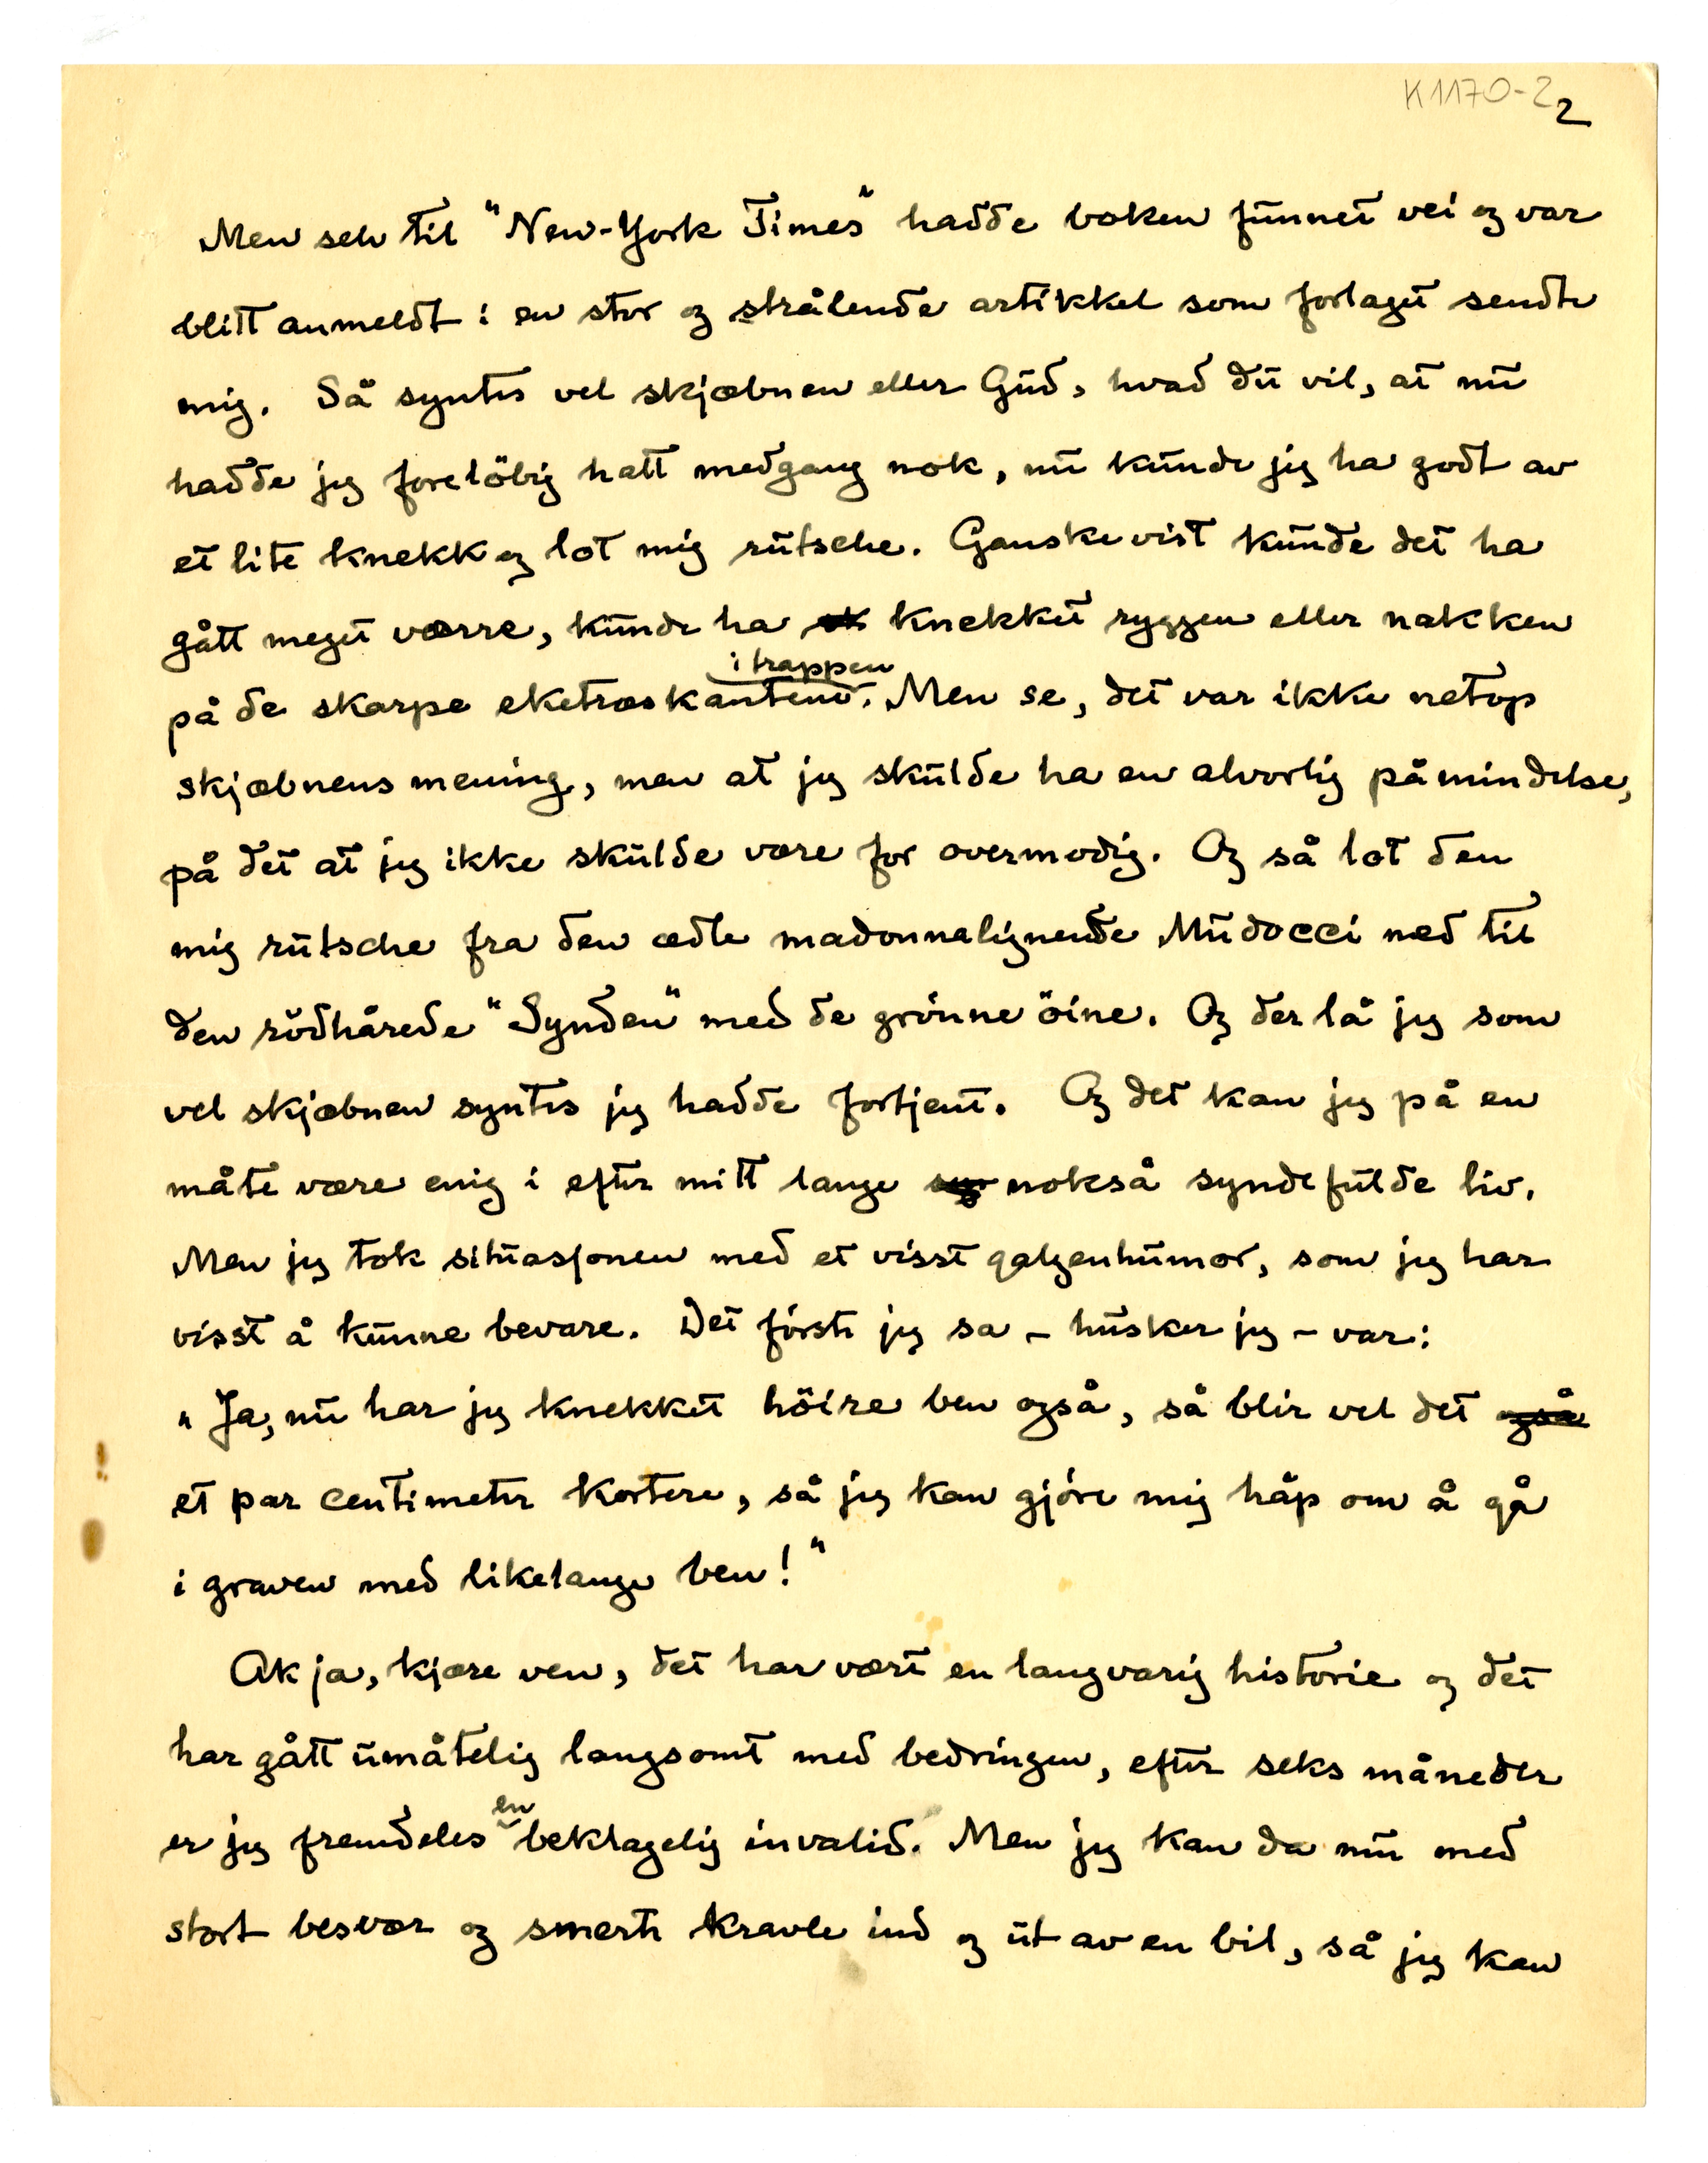 K1170-2
2
Men selv til "New-York Times" hadde boken funnet vei og var
blitt anmeldt i en stor og strålende artikkel som forlaget sendte
mig. Så syntes vel skjæbnen eller Gud, hvad du vil, at nu
hadde jeg foreløbig hatt medgang nok, nu kunde jeg ha godt av
et lite knekk og lot mig rutsche. Ganske vist kunde det ha
gått meget værre, kunde ha knekket ryggen eller nakken
i trappen
på de skarpe eketræskantene. Men se, det var ikke netop
skjæbnens mening, men at jeg skulde ha en alvorlig påmindelse,
på det at jeg ikke skulde være for overmodig. Og så lot den
mig rutsche fra den ædle madonnalignende Mudocci ned til
den rödhårede "Synden" med de grönne öine. Og der lå jeg som
vel skjæbnen syntes jeg hadde fortjent. Og det kan jeg på en
måte være enig i efter mitt lange nokså syndefulde liv.
Men jeg tok situasjonen med et visst galgenhumor, som jeg har
visst å kunne bevare. Det förste jeg sa – husker jeg – var:
"Ja, nu har jeg knekket höire ben også, så blir vel det også
et par centimeter kortere, så jeg kan gjöre mig håp om å gå
i graven med likelange ben!"
Ak ja, kjære ven, det har vært en langvarig historie og det
har gått umåtelig langsomt med bedringen, efter seks måneder
en
er jeg fremdeles beklagelig invalid. Men jeg kan da nu med
stort besvær og smerte kravle ind og ut av en bil, så jeg kan